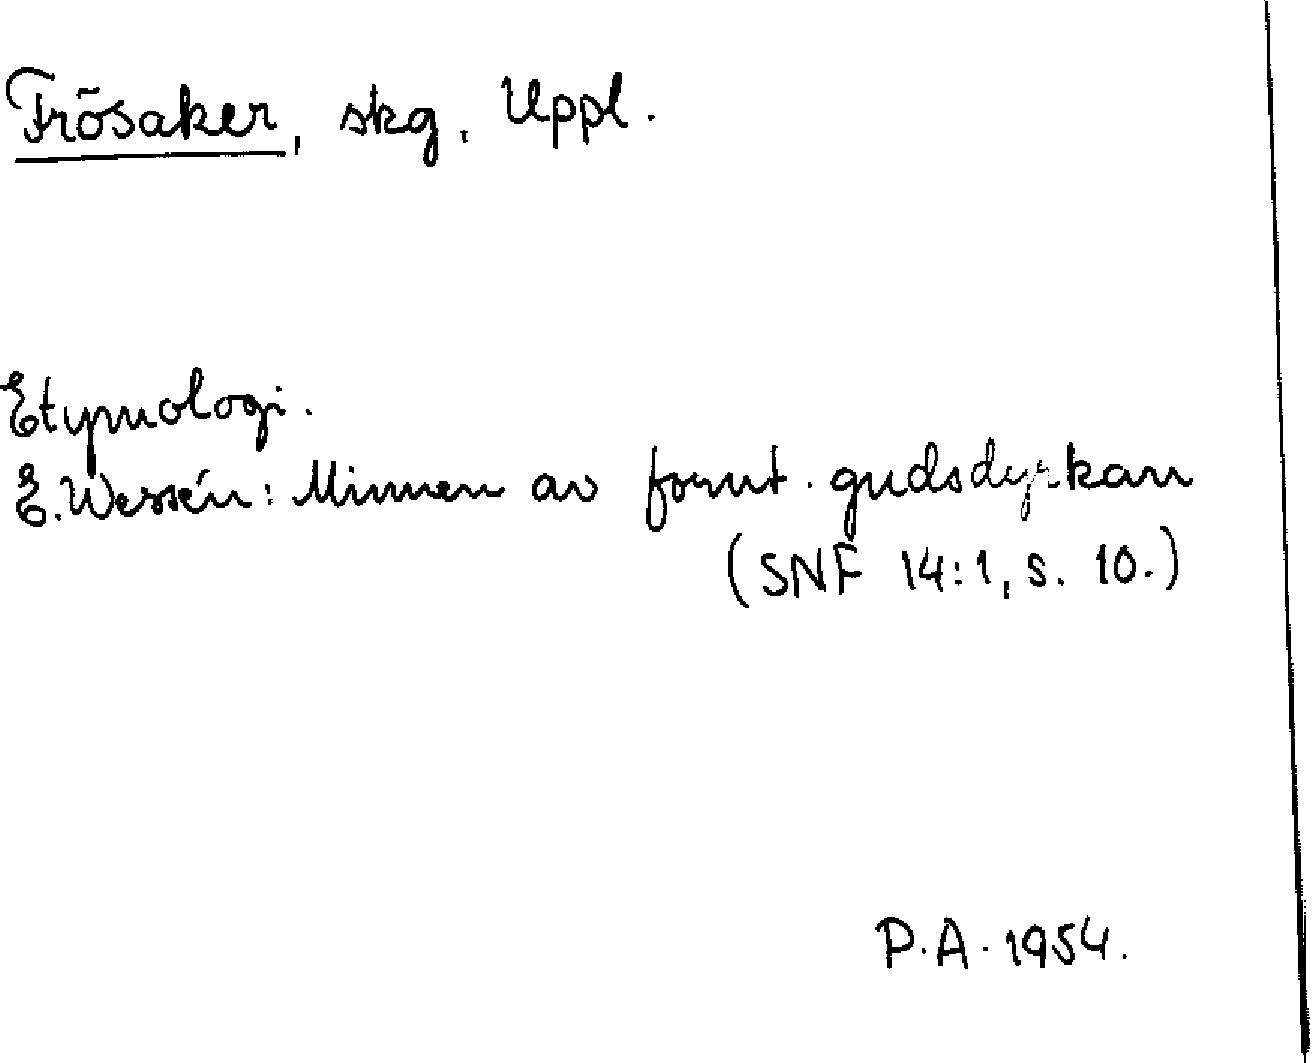 Frösaker, skg, Uppl.
Etymologi.
E. Wessén: Minnen av fornt. gudsdyrkan
(SNF 14:1, s. 10.)
P.A. 1954.